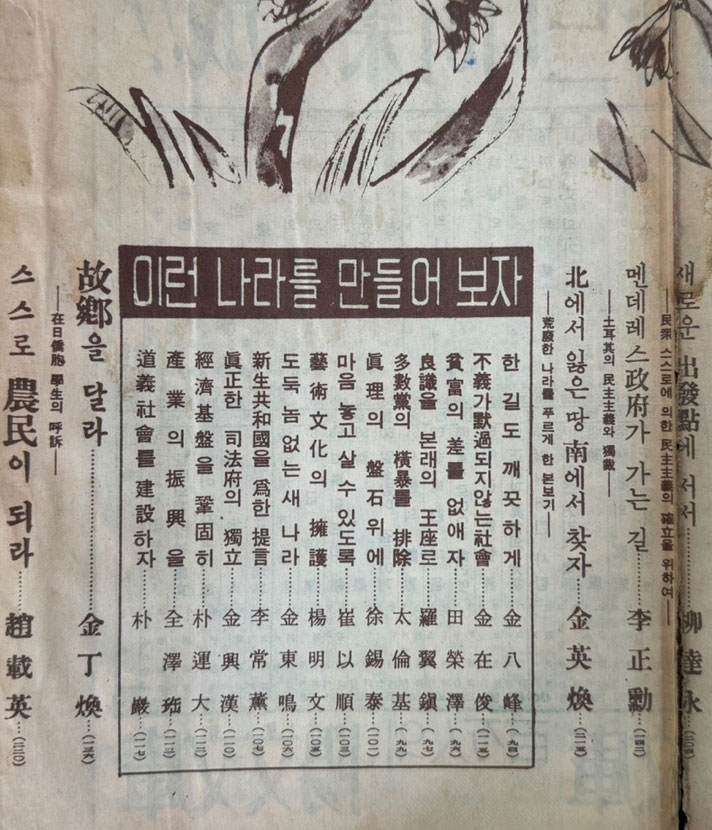 새로운 出發點에 서서……柳達永……(二〇四)
——民衆 스스로에 의한 民主主義의 確立을 위하여——
멘데레스政府가 가는 길……李正勳……(一四二)
——土耳其의 民主主義와 獨裁——
北에서 잃은 땅 南에서 찾자……金英煥……(二一五)
——荒廢한 나라를 푸르게 한 본보기——
이런 나라를 만들어 보자
한 길로 깨끗하게……金八峰……(九四)
不義가默過되지않는社會……金在俊……(二一五)
貧富의 差를 없애자……田榮澤……(九六)
良識을 본래의 王座로……羅翼鎭……(九七)
多數黨의 橫暴를 排除……太倫基……(九九)
眞理의 盤石위에……徐錫泰……(一〇一)
마음 놓고 살 수 있도록……崔以順……(一〇三)
藝術文化의 擁護……楊明文……(一〇五)
도둑 놈 없는 새 나라……金東鳴……(一〇六)
新生共和國을 爲한 提言……李常薰……(一〇七)
眞正한 司法府의 獨立……金興漢……(一一〇)
經濟基盤을 鞏固히……朴運大……(一一二)
產業의 振興을……全澤珤……(一一三)
道義社會를 建設하자……朴巖……(一一七)
故鄕을 달라……金丁煥……(二二六)
——在日僑胞 學生의 呼訴——
스스로 農民이 되라……趙載英……(二三〇)